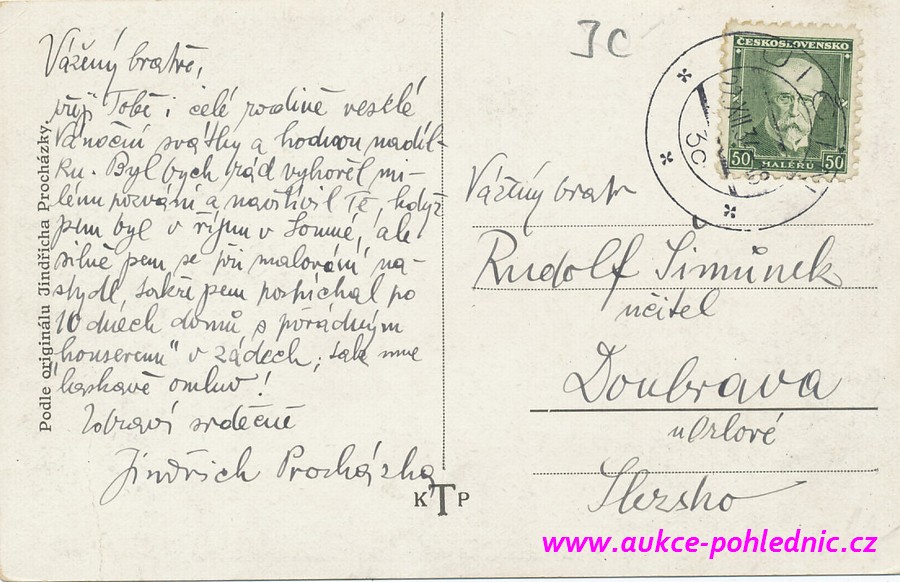 Vážený bratře,
přeji Tobě i celé rodině veselé
Vánoční svátky a hodnou nadíl-
ku. Byl bych rád vyhověl mi-
lému pozvání a navštívil Tě, když
jsem byl v říjnu v Lomné, ale
silně jsem se při malování na-
stydl, takže jsem pospíchal po
10 dnech domů s pořádným
"houserem" v zádech; tak mne
laskavě omluv!
Zdraví srdečně
Jindřich Procházka
Podle originálu Jindřicha Procházky.
K T P
3C
ČESKOSLOVENSKO
50 HALÉŘŮ 50
XII
3C
Vážený bratr
Rudolf Šimůnek
učitel
Doubrava
u Orlové
Slezsko
www.aukce-pohlednic.cz